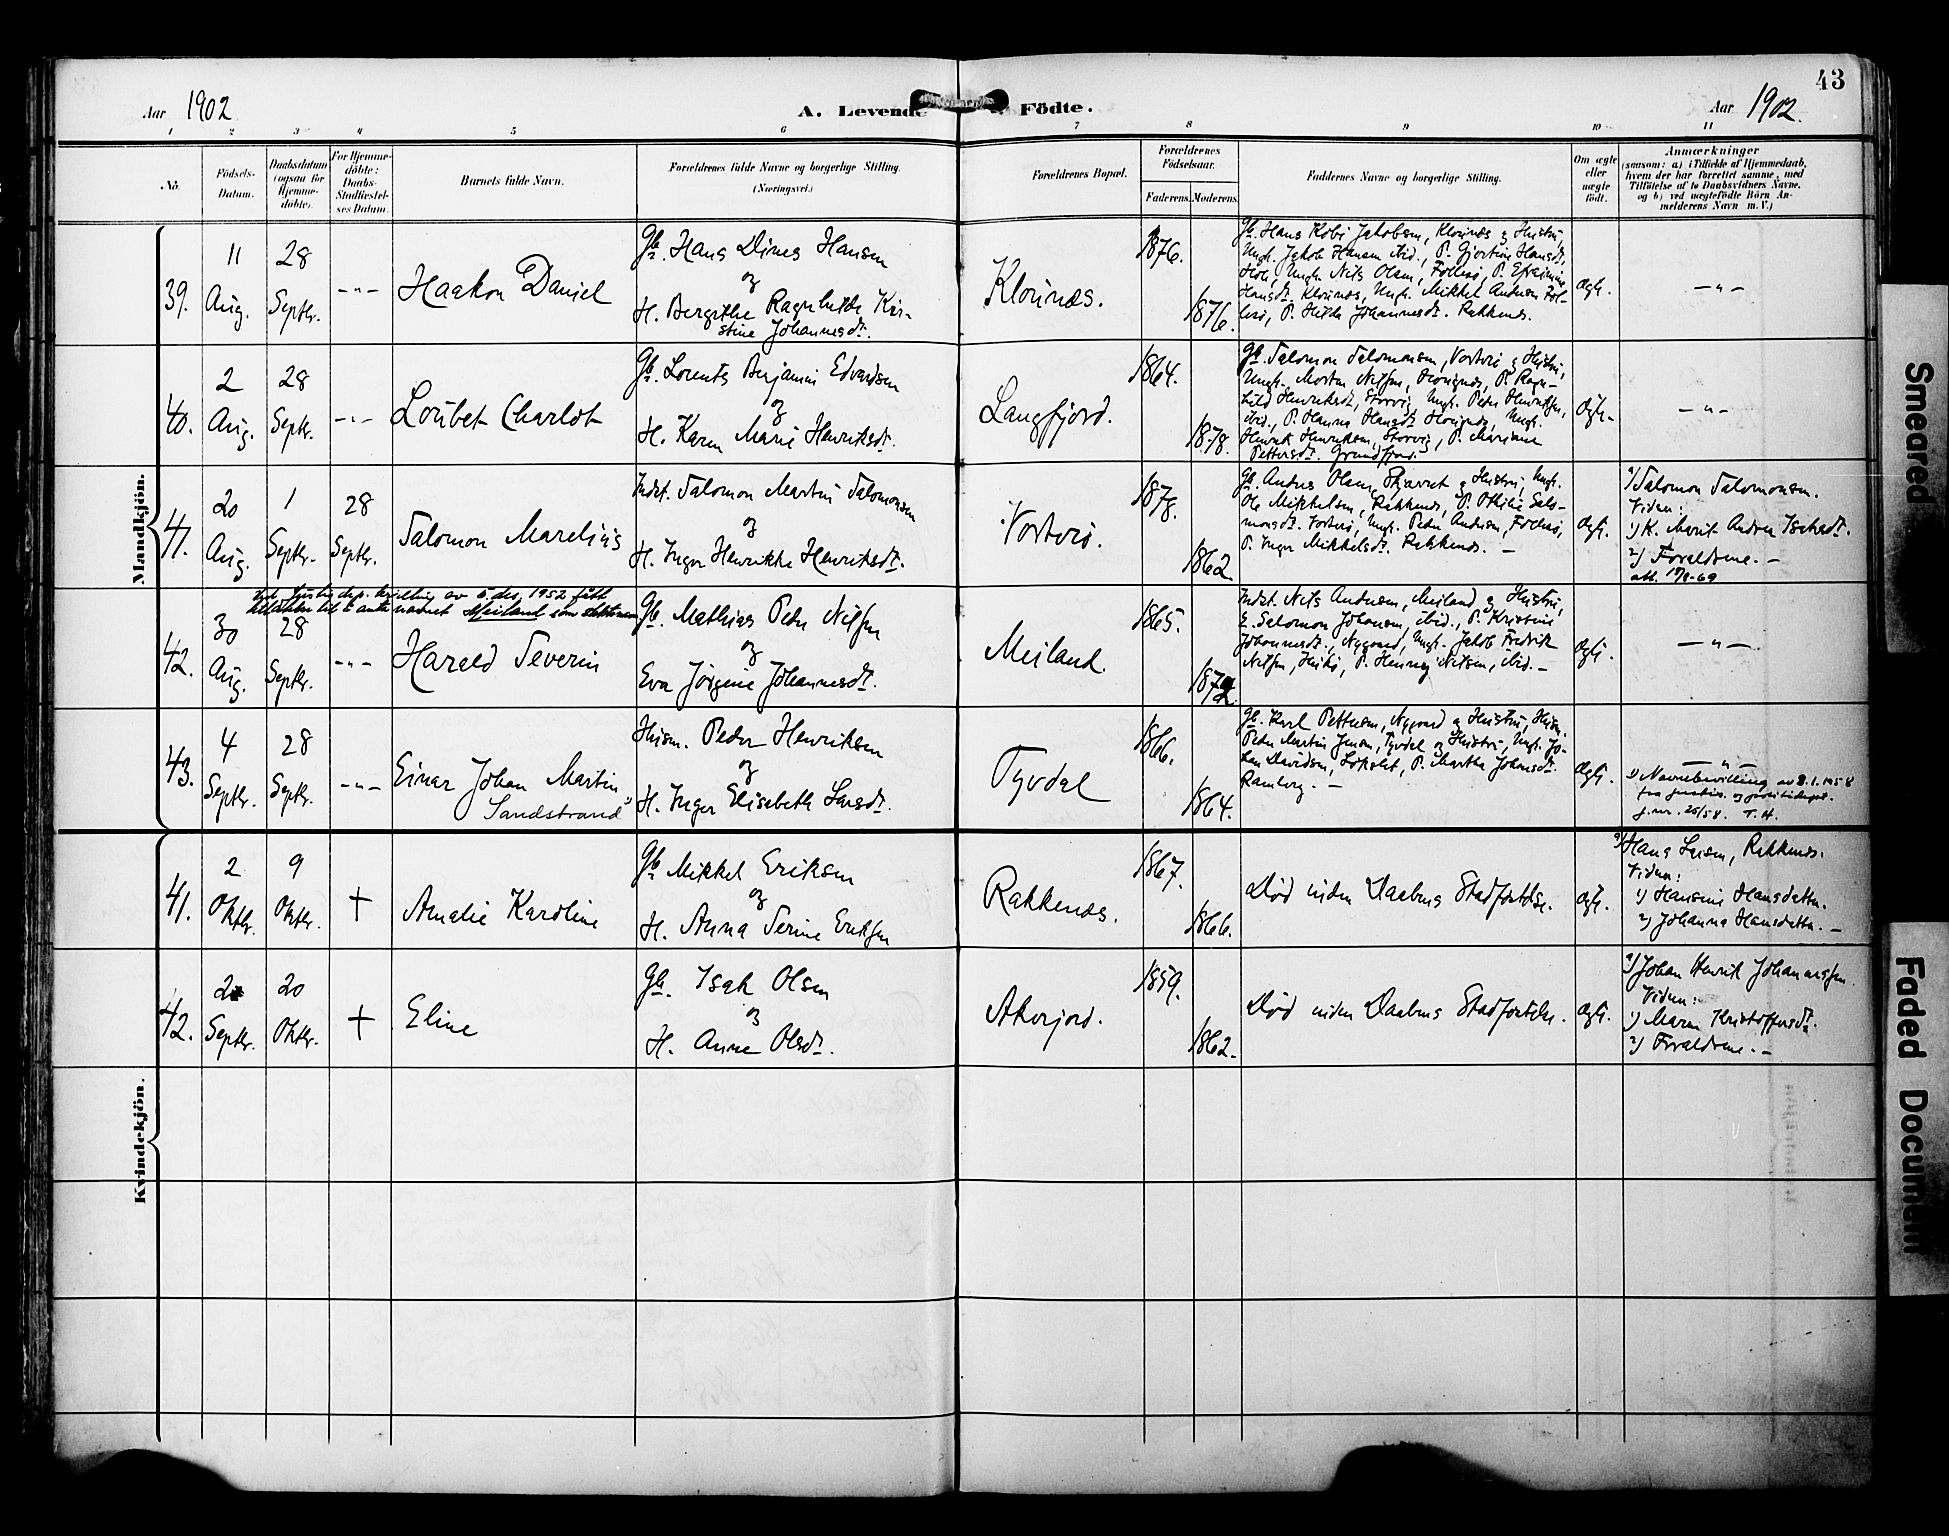 43
Aar 1902
A. Levende Födte.
Aar 1902.
1 2 3 4 5 6 7 8 9 10 11
No.
Födsels-
Datum.
Daabsdatum
(ogsaa for
Hjemme-
döbte).
For Hjemme-
döbte:
Daabs-
Stadfæstel-
ses Datum.
Barnets fulde Navn.
Forældrenes fulde Navne og borgerlige Stilling.
(Næringsvei.)
Forældrenes Bopæl.
Forældrenes
Födselsaar.
Faderens. Moderens.
Faddernes Navne og borgerlige Stilling.
Om ægte
eller
uægte
födt.
Anmærkninger
(saasom: a) i Tilfælde af Hjemmedaab,
hvem der har forrettet samme, med
Tilföielse af to Daabsvidners Navne,
og b) ved uægtefödte Börn An-
melderens Navn m. V.)
Mandkjön.
39.
11
Aug.
28
Septbr.
-"-
Haakon Daniel
Gb. Hans Dines Hansen
og
H. Bergithe Ragnhilda Kir-
stine Johannesdt.
Klovnæs.
1876.
1876.
Gb. Hans Kobi Jakobsen, Klovnæs og Hustru,
Ungk. Jakob Hansen ibid., P. Hansdt.
Ungk. Nils Olsen, P. Efraimine
Hansdt. Klovnæs, Ungk. Mikkel Andersen
P. Hilda Johannesdt. Rakkenes.
ægt.
-"-
40.
2
Aug.
28
Septbr.
-"-
Loubet Charlot
Gb. Lorents Benjamin Edvardsen
og
H. Karen Marie Henriksdt.
Langfjord.
1864.
1878.
Gb. Salomon Salomonsen, Vortvö og Hustru,
Ungk. Morten Nilsen, P. Ragn-
hild Henriksdt, Storvig, Ungk. Peder Henriksen,
ibid., P. Hanna Hansdt Ungk.
Henrik Henriksen, Storvig, P. Mariane
Pettersdt. Grundfjord.
ægt.
-"-
41.
20
Aug.
1
Septbr.
28
Septbr.
Salomon Marelius
Indst. Salomon Martin Salomonsen
og
H. Inger Henrikke Henriksdt.
Vortvö.
1878.
1862.
Gb. Anders Olsen, Skarvet og Hustru, Ungk.
Ole Mikkelsen, Rakkenes, P. Othilie Salo-
monsdt. Vortvö, Ungk. Peder Andersen,
P. Inger Mikkelsdt. Rakkenes. -
ægt.
a) Salomon Salomonsen.
Vidner:
1) K. Marit Andrea Isaksdt.
2) Forældrene. -
att. 17/9-69
Ved Justisdep. bevilling av 6. des. 1952 fått
tillatelse til å anta navnet Meiland som slektsnavn
42.
30
Aug.
28
Septbr.
-"-
Harald Severin
Gb. Mathias Peder Nilsen
og
Eva Jörgine Johannesdt.
Meiland.
1865.
1872.
Indst. Nils Andersen, Meiland og Hustru,
E. Salomon Johansen, ibid., P. Kristine
Johannesdt., Nygaard, Ungk. Jakob Fredrik
Nilsen, P. Henny Nilsen, ibid. -
ægt.
-"-
43.
4
Septbr.
28
Septbr.
-"-
Einar Johan Martin
Sandstrand
Husm. Peder Henriksen
og
H. Inger Elisabeth Larsdt.
Tyvdal
1866.
1864.
Gb. Karl Pettersen, Nygaard og Hustru, Husm.
Peder Martin Jensen, Tyvdal og Hustru, Ungk. Jo-
han Davidsen, P. Martha Johnsdt.
Ramberg. -
ægt.
-"-
1) Navnebevilling av 8.1.1958
fra justis. og politidept.
j.nr. 26/58. T.H.
Kvindekjön.
41.
2
Oktbr.
9
Oktbr.
+
Amalie Karoline
Gb. Mikkel Eriksen
og
H. Anna Serine Eriksen
Rakkenes.
1867.
1866.
Död inden Daabens Stadfæstelse.
ægt.
a) Hans Larsen, Rakkenes.
Vidner:
1) Hansine Hansdatter.
2) Johanna Hansdatter. -
42.
Septbr.
20
Oktbr.
+
Eline
Gb. Isak Olsen
og
H. Anne Olsdt.
Akerjord.
1859.
1862.
Död inden Daabens Stadfæstelse.
ægt.
a) Johan Henrik Johannessen.
Vidner:
1) Maren Kristoffersdt.
2) Forældrene. -
Smeared
Faded Document